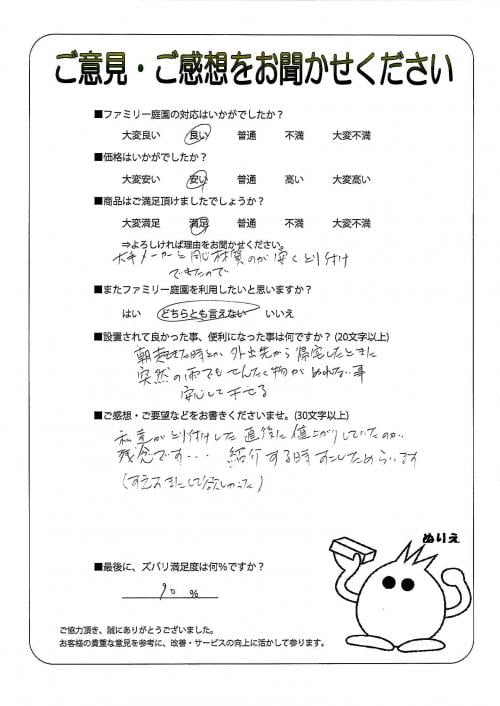 ご意見・ご感想をお聞かせください
■ファミリー庭園の対応はいかがでしたか？
大変良い 良い 普通 不満 大変不満
■価格はいかがでしたか？
大変安い 安い 普通 高い 大変高い
■商品はご満足頂けましたでしょうか？
大変満足 満足 普通 不満 大変不満
⇒よろしければ理由をお聞かせください。
大手メーカーと同じ材質のが安くとり付け
できたので
■またファミリー庭園を利用したいと思いますか？
はい どちらとも言えない いいえ
■設置されて良かった事、便利になった事は何ですか？(20文字以上)
朝起きた時とか外出先から帰宅したときに
突然の雨でもせんたく物がぬれない事
安心して干せる
■ご感想・ご要望などをお書きくださいませ。(30文字以上)
私達がとり付けした直後に値上がりしていたのが、
残念です・・・ 紹介する時すこしためらいます
(すえおきにして欲しかった)
ぬりえ
■最後に、ズバリ満足度は何％ですか？
90 %
ご協力頂き、誠にありがとうございました。
お客様の貴重な意見を参考に、改善・サービスの向上に活かして参ります。